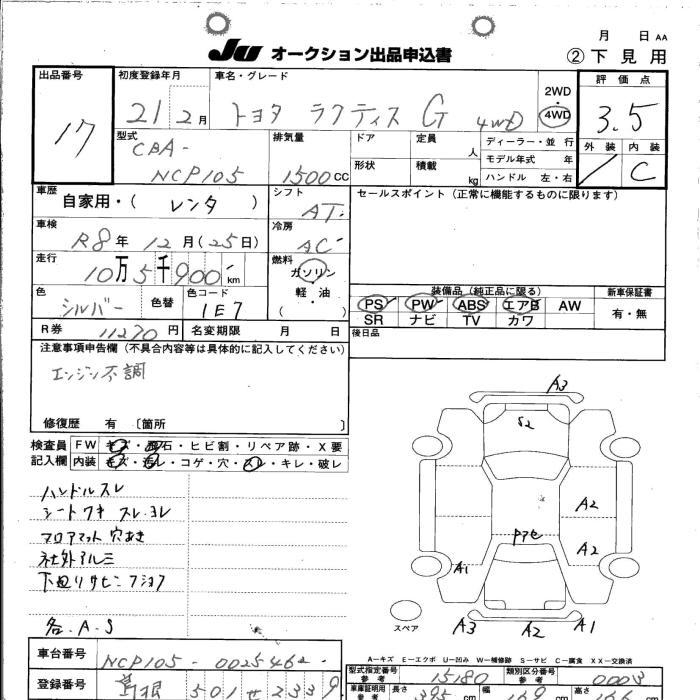 月 日 AA
JU オークション出品申込書 ②下見用
出品番号 17
初度登録年月 21 2月
車名・グレード トヨタ ラクティス G 4WD
2WD・4WD
評価点 3.5
外装 内装
／ C
型式 CBA-
NCP105
排気量 1500CC
ドア 定員 人
形状 積載 kg
ディーラー・並行
モデル年式 年
ハンドル 左・右
車歴 自家用・(レンタ)
シフト AT
セールスポイント（正常に機能するものに限ります）
車検 R8年12月(25日)
冷房 AC
走行 10万5千900km
燃料 ガソリン・軽油・( )
色 シルバー 色替 色コード 1E7
装備品（純正品に限る） 新車保証書
PS PW ABS エアB AW 有・無
SR ナビ TV カワ
R券 11270円 名変期限 月 日
後日品
注意事項申告欄（不具合内容等は具体的に記入してください）
エンジン不調
修復歴 有 〔箇所 〕
検査員記入欄
FW キズ・飛石・ヒビ割・リペア跡・X要
内装 キズ・汚レ・コゲ・穴・スレ・キレ・破レ
ハンドルスレ
シートワキ スレ.ヨレ
フロアマット穴あき
社外アルミ
下廻りサビ
各.A.S
A3
S2
A2
A2
A1
A3 A2 A1
スペア
A－キズ E－エクボ U－凹み W－補修跡 S－サビ C－腐食 XX－交換済
車台番号 NCP105-0025462
型式指定番号 15180 類別区分番号 0003
登録番号 島根 501 せ 2339
車庫証明用参考 長さ 395 cm 幅 169 cm 高さ cm